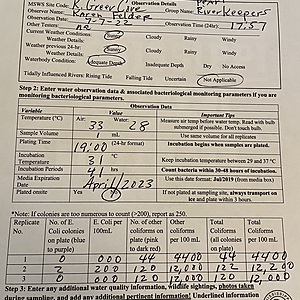 MSWS Site Code: R. Greer Cove Group Name: River Keepers
Karen Felder
Observation Date: 9-7-22 Observation Time (24hr): 17:57
Current Weather Conditions:
Weather Details: Sunny Cloudy Rainy Windy
Weather previous 24-hr:
Weather Details: Sunny Cloudy Rainy Windy
Waterbody Condition: Adequate Depth Inadequate Depth Dry No Access
Tidally Influenced Rivers: Rising Tide Falling Tide Uncertain Not Applicable
Step 2: Enter water observation data & associated bacteriological monitoring parameters if you are
monitoring bacteriological parameters.
Observation Data
Variable Important Tips
Temperature (°C) Air: 33 Water: 28 Measure air temp before water temp. Read with bulb submerged if possible. Don't touch bulb.
Sample Volume 1 mL Use same volume for all replicates
Plating Time 19:00 (24-hr format) Incubation begins when samples are plated.
Incubation Temperature 31 °C Keep incubation temperature between 29 and 37 °C
Incubation Periods 41 hrs Count bacteria within 30-48 hours of incubation.
Media Expiration Date April/2023 Use this date format: Jul/2019 (from media box)
Plated onsite Y If not plated at sampling site, always transport on ice and plate within 3 hours.
*Note: If colonies are too numerous to count (>200), report as 250.
Replicates No. of E. Coli colonies on plate (blue to purple) E. Coli per 100mL No. of other coliforms on plate (pink to dark red) Other coliforms per 100mL Total Coliforms (all colonies on plate) Total Coliforms per 100mL
1 0 000 44 4400 44 4400
2 2 200 120 12,000 122 12,200
3 0 000 120 12,000 120
Step 3: Enter any additional water quality information, wildlife sightings, photos taken
during sampling, and add any additional pertinent information! Underlined information